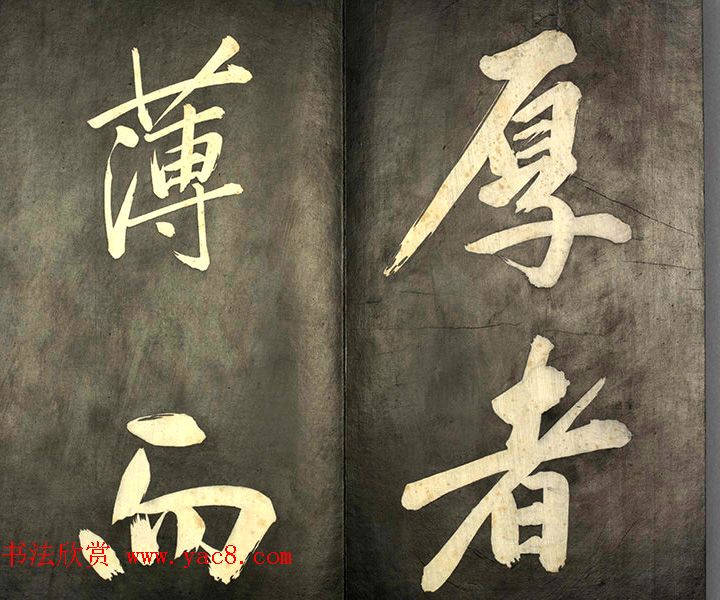 厚者
薄而
书法欣赏 www.yac8.com